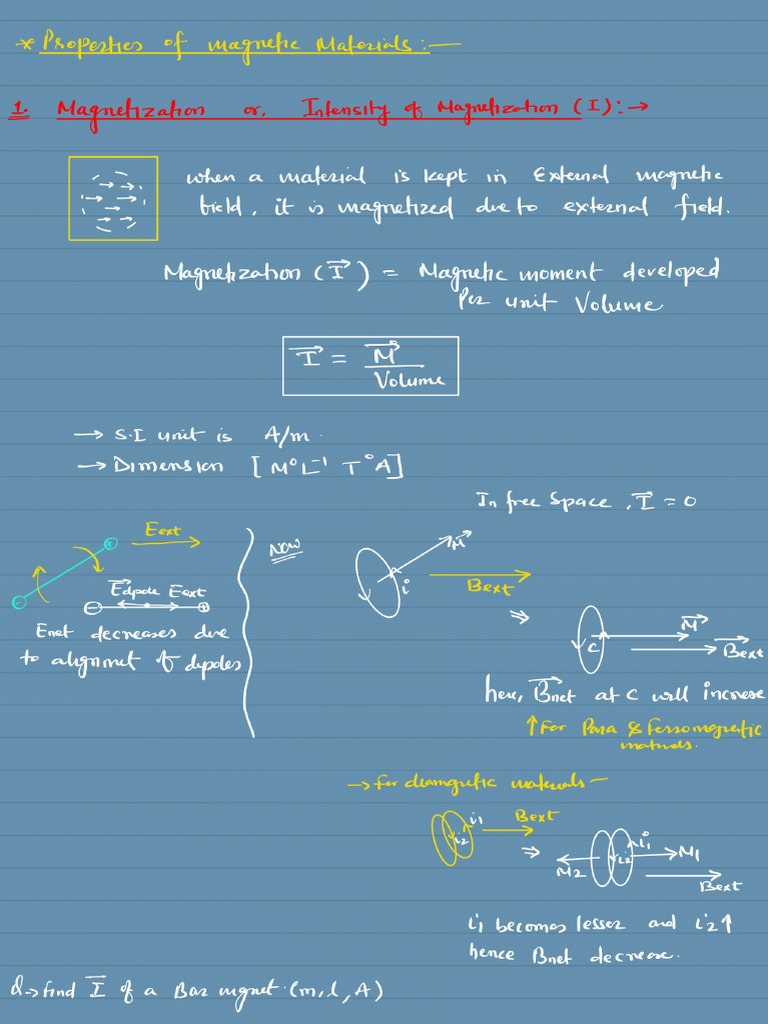 * Properties of magnetic Materials:—
1. Magnetization or, Intensity of Magnetization (I):→
when a material is kept in External magnetic
field, it is magnetized due to external field.
Magnetization (I→) = Magnetic moment developed
Per unit Volume
I→ = M→ / Volume
→ S.I unit is A/m.
→ Dimension [M⁰L⁻¹ T⁰A]
In free Space, I→ = 0
Eext
Edipole→ Eext
Enet decreases due
to alignment of dipoles
Now
M→
i
Bext
⇒
C
M→
Bext→
here, Bnet→ at C will increase
↑ For Para & Ferromagnetic
materials.
→ For diamagnetic materials —
i1
i2
Bext
⇒
M2
i2
i1
M1
Bext
i1 becomes lesser and i2↑
hence Bnet decrease.
Q→ find I→ of a Bar magnet. (m, l, A)